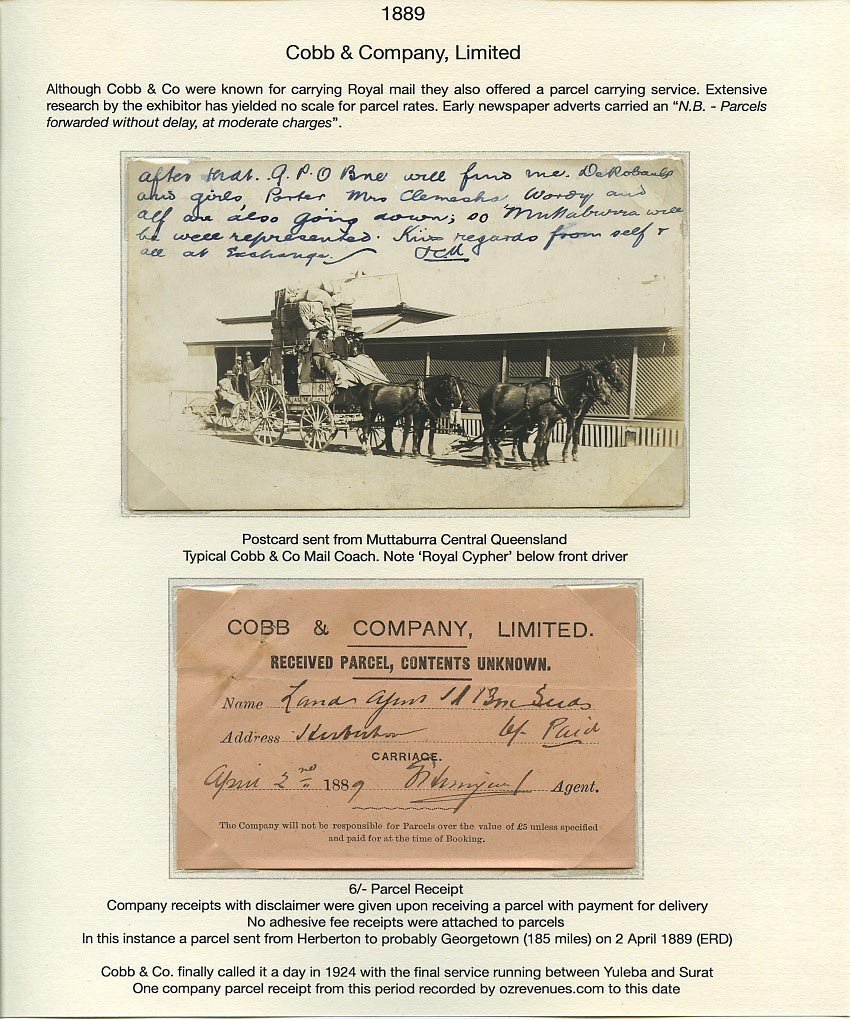 1889
Cobb & Company, Limited
Although Cobb & Co were known for carrying Royal mail they also offered a parcel carrying service. Extensive
research by the exhibitor has yielded no scale for parcel rates. Early newspaper adverts carried an “N.B. - Parcels
forwarded without delay, at moderate charges”.
after G.P.O Bne will find me. DeRobaulx
and girls, Porter, Mrs Clemesha, Wordy and
Alf are also going down; so Muttaburra will
be well represented. Kind regards from self &
all at Exchange.
Postcard sent from Muttaburra Central Queensland
Typical Cobb & Co Mail Coach. Note ‘Royal Cypher’ below front driver
COBB & COMPANY, LIMITED.
RECEIVED PARCEL, CONTENTS UNKNOWN.
Name Lands
Address Herberton 6/- Paid
CARRIAGE.
April 2nd 1889 Agent.
The Company will not be responsible for Parcels over the value of £5 unless specified
and paid for at the time of Booking.
6/- Parcel Receipt
Company receipts with disclaimer were given upon receiving a parcel with payment for delivery
No adhesive fee receipts were attached to parcels
In this instance a parcel sent from Herberton to probably Georgetown (185 miles) on 2 April 1889 (ERD)
Cobb & Co. finally called it a day in 1924 with the final service running between Yuleba and Surat
One company parcel receipt from this period recorded by ozrevenues.com to this date